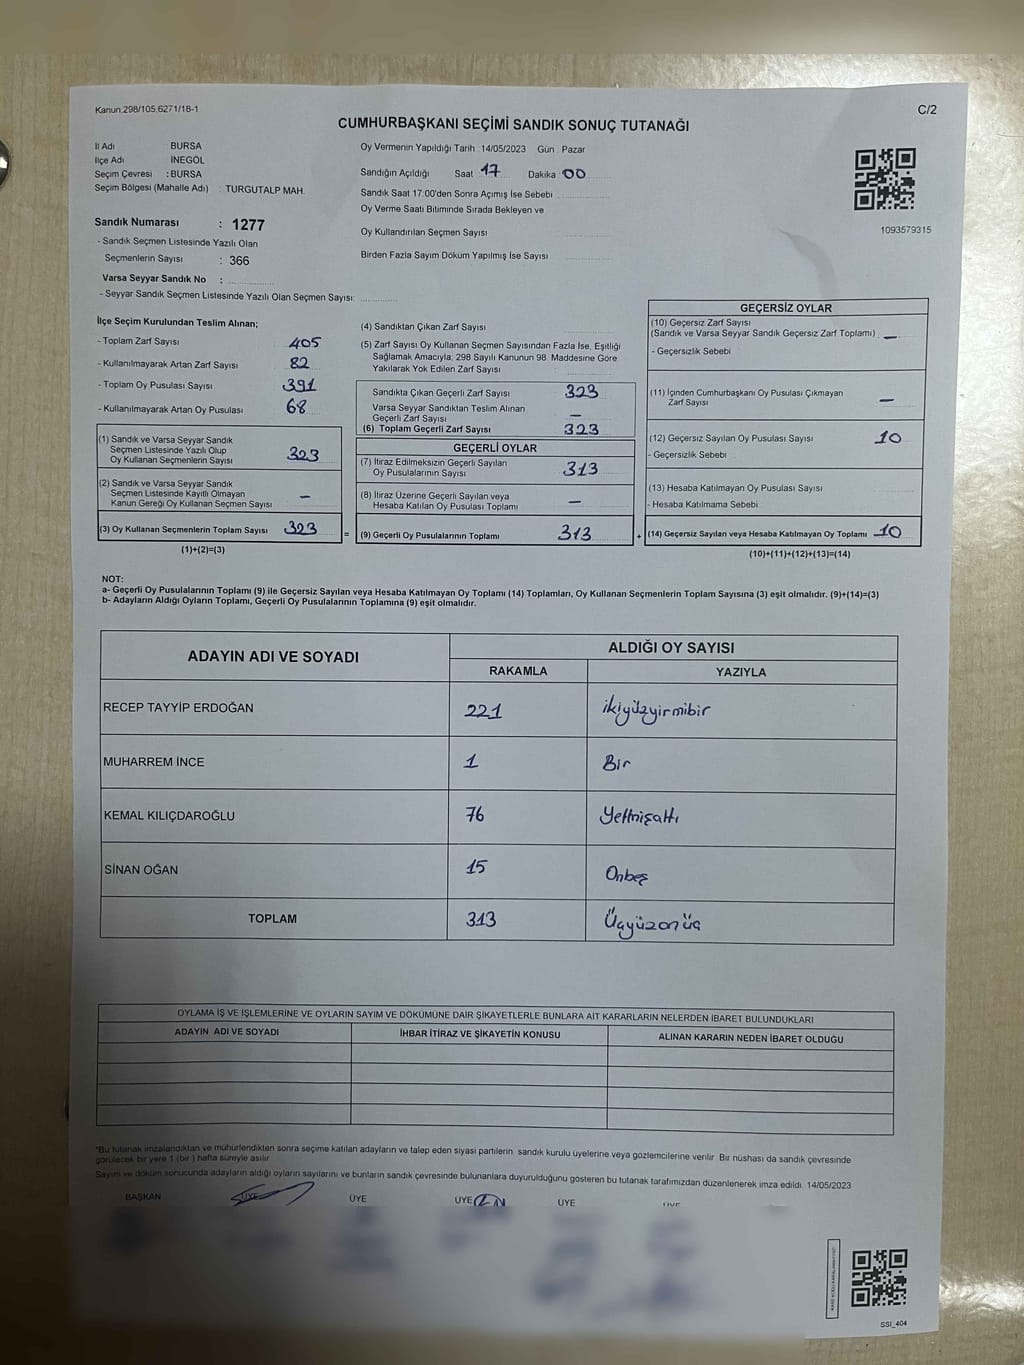 Kanun.298/105,6271/18-1
C/2
CUMHURBAŞKANI SEÇİMİ SANDIK SONUÇ TUTANAĞI
İl Adı BURSA
İlçe Adı İNEGÖL
Seçim Çevresi : BURSA
Seçim Bölgesi (Mahalle Adı) : TURGUTALP MAH.
Sandık Numarası : 1277
- Sandık Seçmen Listesinde Yazılı Olan
Seçmenlerin Sayısı : 366
Varsa Seyyar Sandık No :
- Seyyar Sandık Seçmen Listesinde Yazılı Olan Seçmen Sayısı:
Oy Vermenin Yapıldığı Tarih : 14/05/2023 Gün : Pazar
Sandığın Açıldığı Saat 17 Dakika 00
Sandık Saat 17.00'den Sonra Açımış İse Sebebi
Oy Verme Saati Bitiminde Sırada Bekleyen ve
Oy Kullandırılan Seçmen Sayısı
Birden Fazla Sayım Döküm Yapılmış İse Sayısı
1093579315
İlçe Seçim Kurulundan Teslim Alınan;
- Toplam Zarf Sayısı 405
- Kullanılmayarak Artan Zarf Sayısı 82
- Toplam Oy Pusulası Sayısı 391
- Kullanılmayarak Artan Oy Pusulası 68
(1) Sandık ve Varsa Seyyar Sandık
Seçmen Listesinde Yazılı Olup
Oy Kullanan Seçmenlerin Sayısı 323
(2) Sandık ve Varsa Seyyar Sandık
Seçmen Listesinde Kayıtlı Olmayan
Kanun Gereği Oy Kullanan Seçmen Sayısı –
(3) Oy Kullanan Seçmenlerin Toplam Sayısı 323 =
(1)+(2)=(3)
(4) Sandıktan Çıkan Zarf Sayısı
(5) Zarf Sayısı Oy Kullanan Seçmen Sayısından Fazla İse, Eşitliği
Sağlamak Amacıyla; 298 Sayılı Kanunun 98. Maddesine Göre
Yakılarak Yok Edilen Zarf Sayısı
Sandıkta Çıkan Geçerli Zarf Sayısı 323
Varsa Seyyar Sandıktan Teslim Alınan
Geçerli Zarf Sayısı –
(6) Toplam Geçerli Zarf Sayısı 323
GEÇERLİ OYLAR
(7) İtiraz Edilmeksizin Geçerli Sayılan
Oy Pusulalarının Sayısı 313
(8) İtiraz Üzerine Geçerli Sayılan veya
Hesaba Katılan Oy Pusulası Toplamı –
(9) Geçerli Oy Pusulalarının Toplamı 313 +
GEÇERSİZ OYLAR
(10) Geçersiz Zarf Sayısı
(Sandık ve Varsa Seyyar Sandık Geçersiz Zarf Toplamı) –
- Geçersizlik Sebebi
(11) İçinden Cumhurbaşkanı Oy Pusulası Çıkmayan
Zarf Sayısı –
(12) Geçersiz Sayılan Oy Pusulası Sayısı 10
- Geçersizlik Sebebi
(13) Hesaba Katılmayan Oy Pusulası Sayısı
- Hesaba Katılmama Sebebi
(14) Geçersiz Sayılan veya Hesaba Katılmayan Oy Toplamı 10
(10)+(11)+(12)+(13)=(14)
NOT:
a- Geçerli Oy Pusulalarının Toplamı (9) ile Geçersiz Sayılan veya Hesaba Katılmayan Oy Toplamı (14) Toplamları, Oy Kullanan Seçmenlerin Toplam Sayısına (3) eşit olmalıdır. (9)+(14)=(3)
b- Adayların Aldığı Oyların Toplamı, Geçerli Oy Pusulalarının Toplamına (9) eşit olmalıdır.
ADAYIN ADI VE SOYADI
ALDIĞI OY SAYISI
RAKAMLA YAZIYLA
RECEP TAYYİP ERDOĞAN 221 ikiyüzyirmibir
MUHARREM İNCE 1 Bir
KEMAL KILIÇDAROĞLU 76 Yetmişaltı
SİNAN OĞAN 15 Onbeş
TOPLAM 313 Üçyüzonüç
OYLAMA İŞ VE İŞLEMLERİNE VE OYLARIN SAYIM VE DÖKÜMÜNE DAİR ŞİKAYETLERLE BUNLARA AİT KARARLARIN NELERDEN İBARET BULUNDUKLARI
ADAYIN ADI VE SOYADI İHBAR İTİRAZ VE ŞİKAYETİN KONUSU ALINAN KARARIN NEDEN İBARET OLDUĞU
*Bu tutanak imzalandıktan ve mühürlendikten sonra seçime katılan adayların ve talep eden siyasi partilerin sandık kurulu üyelerine veya gözlemcilerine verilir. Bir nüshası da sandık çevresinde
görülecek bir yere 1 (bir) hafta süreyle asılır.
Sayım ve döküm sonucunda adayların aldığı oyların sayılarını ve bunların sandık çevresinde bulunanlara duyurulduğunu gösteren bu tutanak tarafımızdan düzenlenerek imza edildi. 14/05/2023
BAŞKAN ÜYE ÜYE ÜYE ÜYE ÜYE
SSI_404